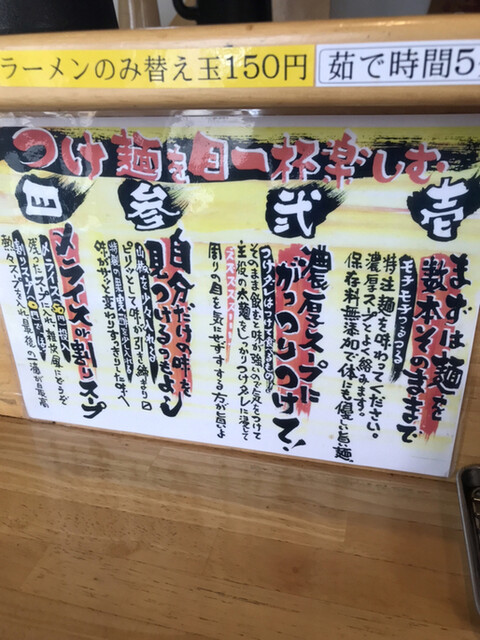 ラーメンのみ替え玉150円
茹で時間5
つけ麺を目一杯楽しむ
壱
まずは麺を
数本そのままで
モチモチつるつる
特注麺を味わってください。
濃厚スープとよく絡みます。
保存料無添加で体にも優しい旨い麺
弐
濃厚スープに
がっつりつけて!
つけダレはつけて食べるもの
そのまま飲むと味が強いので麺をつけて
主役の太麺をしっかりつけダレに浸して
ズズズズズ
周りの目を気にせずすする方が旨いよ
参
自分だけの味を
見つけるつもよし
を少々入れる
ピリッとして味が引き締まり
味がサッと変わり
四
〆ライスか割りスープ
〆ライス 投入
残ったスープに入れ雑炊風にどうぞ
割りスープ
熱々スープを入れ最後の一滴が最高